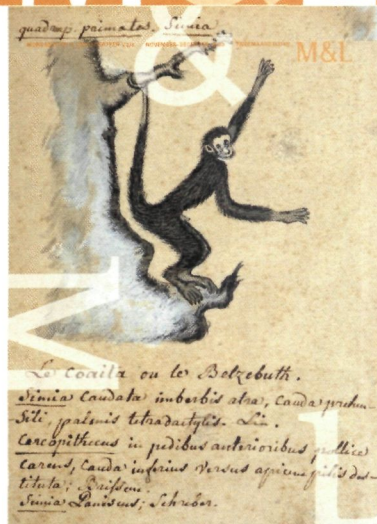 quadrup. primatos. Simia
M&L
Le Coaita ou le Belzebuth.
Simia Caudata imberbis atra, Cauda prehen-
Sili, palmis tetradactylis. Lin.
Cercopithecus in pedibus anterioribus pollice
carens, Cauda inferius versus apicem pilis des-
tituta; Brisson.
Simia Paniscus; Schreber.
&
M
L